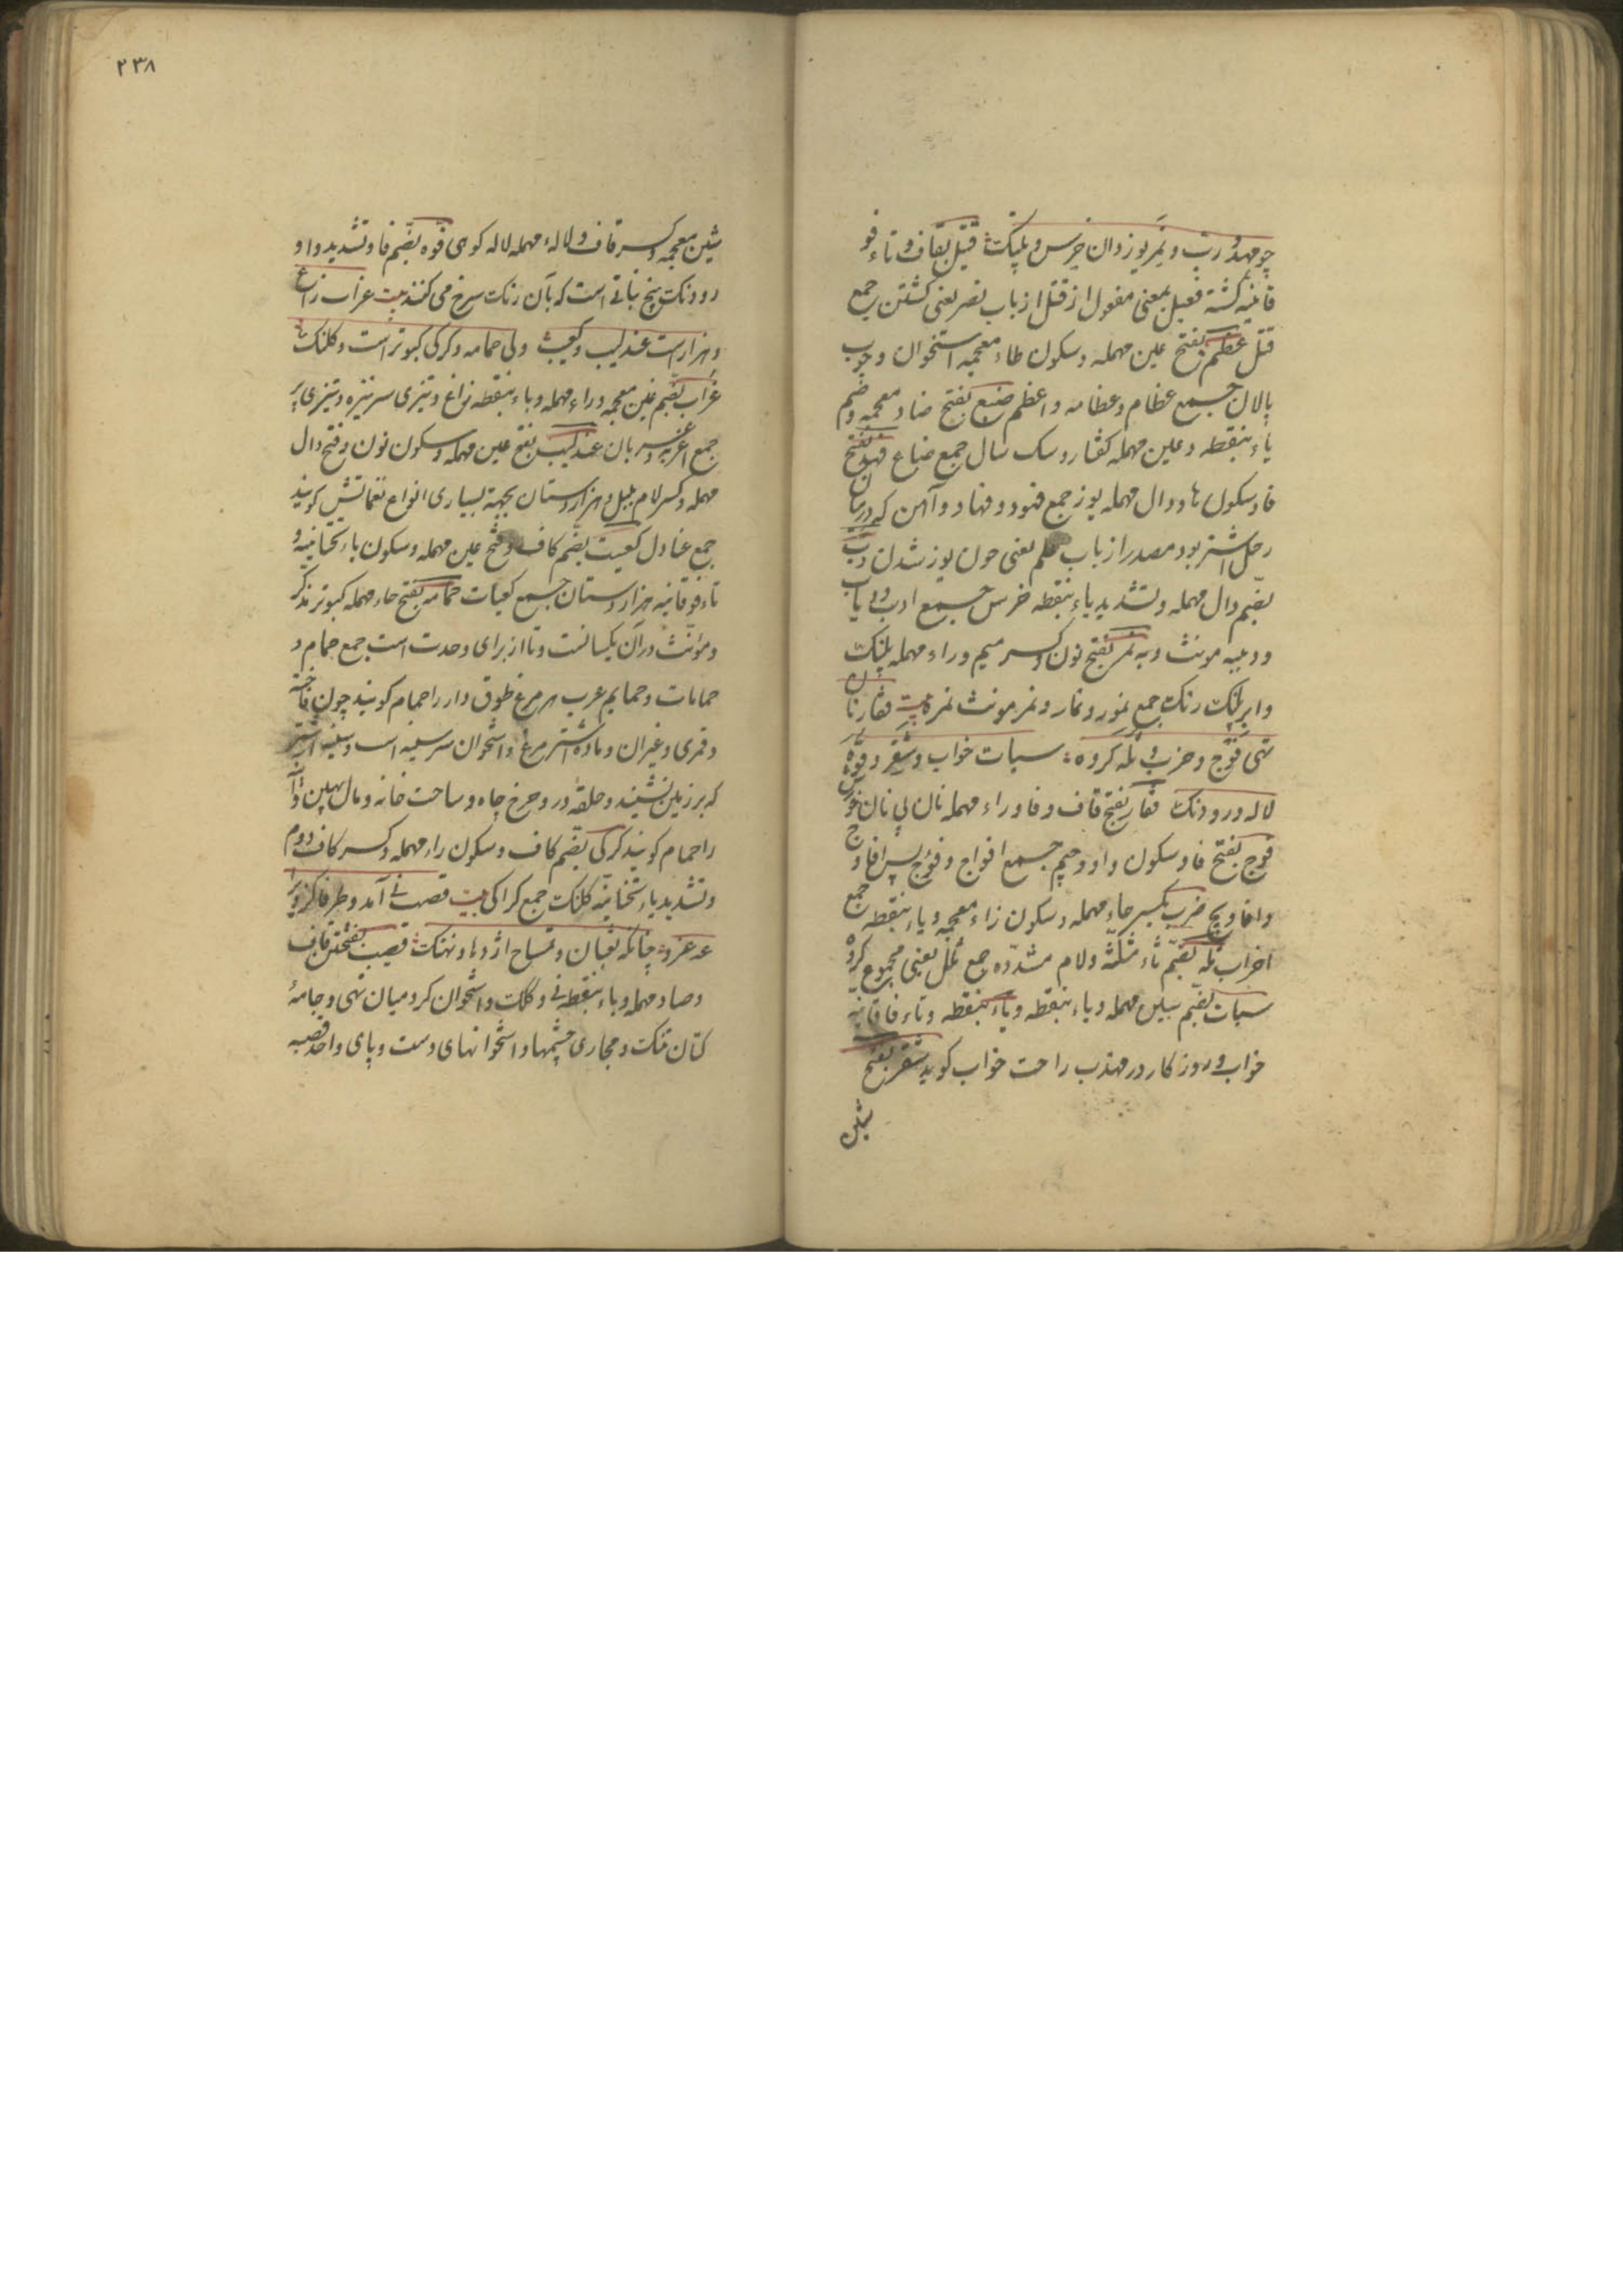 چو فهد و دب و نمر یوز دان خرس و پلنک قتیل بقاف و تاء فو
قانیه کشته فعیل بمعنی مفعول از قتل از باب نصر یعنی کشتن جمع
قتل عظم بفتح عین مهمله و سکون ظاء معجمه استخوان و چوب
پالان جمع عظام و عظامه و اعظم ضبع بفتح ضاد معجمه و ضم
باء بنقطه و عین مهمله کفتار و سک سال جمع ضباع فهد بفتح
فا و سکون ها و دال مهمله یوز جمع فهود و فهاد و آهن که در میان
رحل اشتر بود مصدر از باب علم یعنی چون یوز شدن دب
بضم دال مهمله و تشدید باء بنقطه خرس جمع ادب و دباب
و دببه مونث دبه نمر بفتح نون و کسر میم و راء مهمله پلنک
و ابر پلنک رنک جمع نمور و نمار و نمر مونث نمرة بیت قفار نان
تهی فوج و حزب و ثله کروه سبات خواب و شقر و فوه
لاله و رودنک قفار بفتح قاف و فا و راء مهمله نان بی نان خورش
فوج بفتح فا و سکون واو و جیم جمع افواج و فؤج پس افاوج
و افاویج حزب بکسر حاء مهمله و سکون زاء معجمه و باء بنقطه جمع
احزاب ثله بضم ثاء مثلثه و لام مشدده جمع ثلل یعنی مجموع کروه
سبات بضم سین مهمله و باء بنقطه و تاء فاقانیه
خواب و روزکار در مهذب راحت خواب کوید شقر بفتح
شین
۲۳۸
شین معجمه و کسر قاف و لاله مهمله لاله کوهی فوه بضم فا و تشدید واو
رودنک بیخ نباتی است که بآن رنک سرخ می کنند بیت غراب زاغ
و هزار است عندلیب و کعیت ولی حمامه و کرکی کبوتر است و کلنک
غراب بضم غین معجمه و راء مهمله و باء بنقطه زاغ و تیزی سر نیزه و تیزی تبر
جمع اغربه و غربان عندلیب بفتح عین مهمله و سکون نون و فتح دال
مهمله و کسر لام بلبل و هزاردستان بجهة بسیاری انواع نغماتش کویند
جمع عنادل کعیت بضم کاف و فتح عین مهمله و سکون یاء تحتانیه و
تاء فوقانیه هزاردستان جمع کعیات حمامه بفتح حاء مهمله کبوتر مذکر
و مؤنث در آن یکسانست و تا از برای وحدت است جمع حمام و
حمامات و حمایم عرب هر مرغ طوق دار را حمام کویند چون فاخته
و قمری و غیر آن و ماده اشتر مرغ و استخوان سر سینه اسب و سینه اشتر
که بر زمین نشیند و حلقه در و چرخ چاه و ساحت خانه و مال بهین و آن
را حمام کویند کرکی بضم کاف و سکون راء مهمله و کسر کاف دوم
و تشدید یاء تحتانیه کلنک جمع کراکی بیت قصب نی آمد و طرفا کز و یر
عه غرو چنانکه ثعبان و تمساح اژدها و نهنک قصب بفتحتین قاف
و صاد مهمله و باء بنقطه نی و کلک و استخوان کرد میان تهی و جامهٔ
کتان تنک و مجاری چشمها و استخوانهای دست و پای واحد قصبه